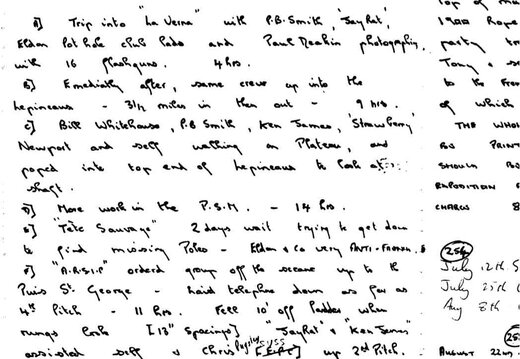 A] Trip into "La Verna" with P.B. Smith, 'JayRat',
Eldon Pot hole club lads and Paul Deakin photographing,
with 16 flashguns. 4 hrs.
B] Emediatly after, same crew up into the
Lepineaux - 3½ miles in then out - 9 hrs.
C] Bill Whitehouse, P.B Smith, Ken James, 'Strawberry'
Newport and self walking on Plateau, and
poped into top end of Lepineaux to look at
shaft.
D] More work in the P.S.M. - 14 hrs.
E] "Tête Sauvage" 2 days wait trying to get down
to find missing Poles - Eldon & Co very ANTI-
F] "A.R.S.I.P" orderd group off the scene up to the
Puis St. George - laid telephone down as far as
4th Pitch - 11 hrs. Fell 10' off ladder when
rungs broke [13" Spacings] "JayRat" & "Ken James"
assisted self & Chris up 2nd Pitch.
top of
1900 Rope
party
Tony &
to the
of which
THE WHOL
BU PRIN
SHOULD BU
EXPODITION
CHARCS
256
July 12th
July 25th
Aug 8th
25
AUGUST 22N